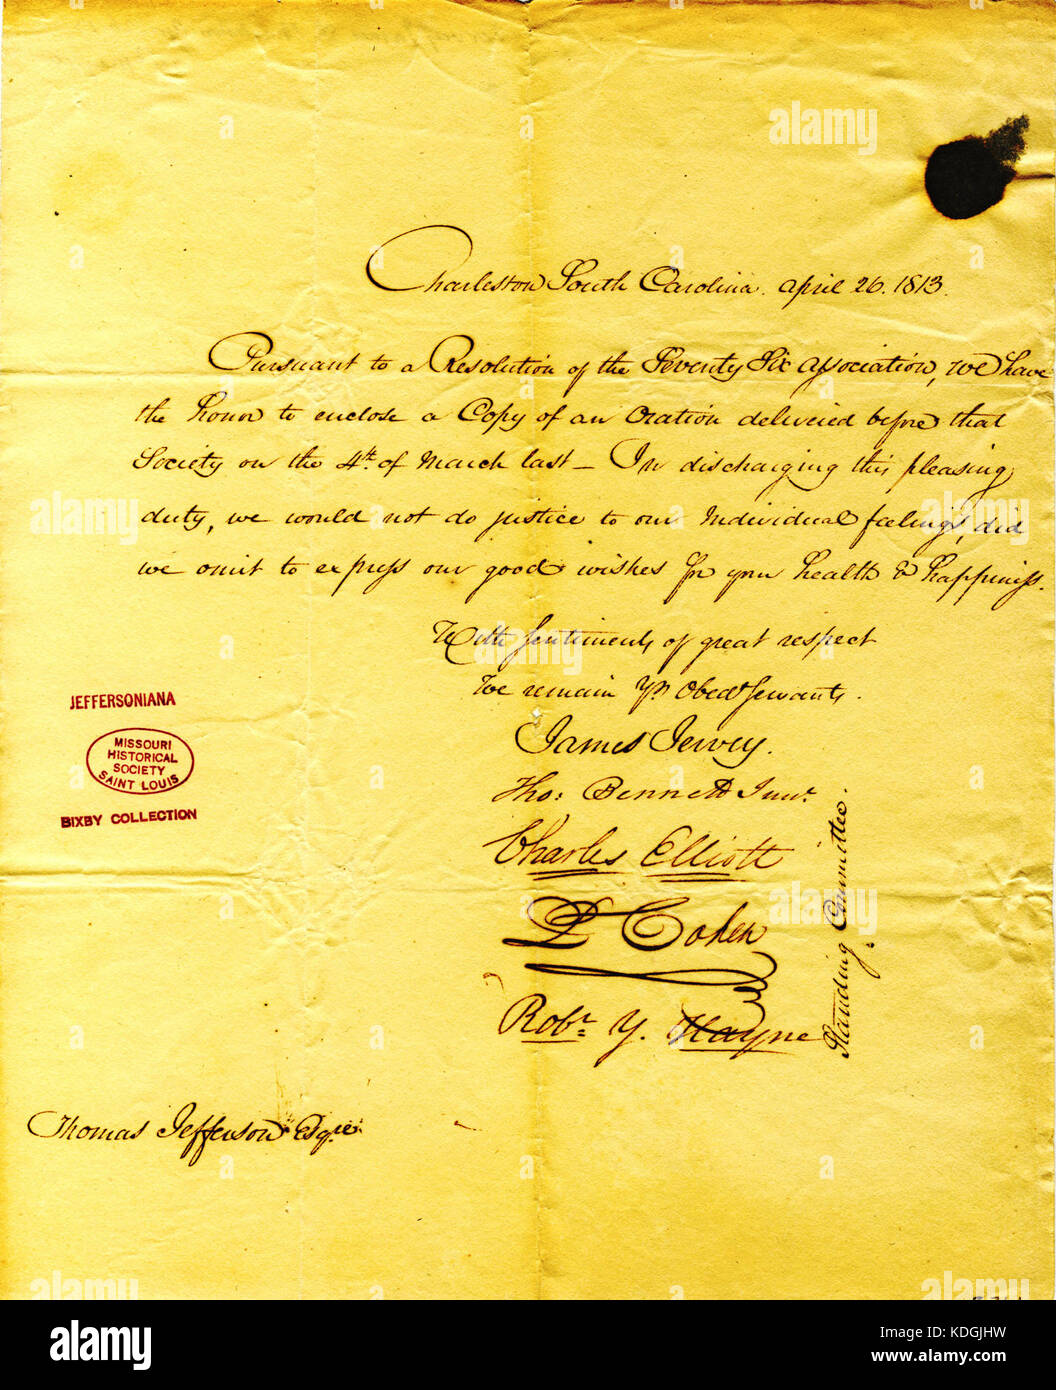 Charleston South Carolina. April 26. 1813.
Pursuant to a Resolution of the Seventy Six Association, we have
the honor to enclose a Copy of an Oration delivered before that
Society on the 4th. of March last – In discharging this pleasing
duty, we would not do justice to our Individual feelings, did
we omit to express our good wishes for your health & happiness.
With sentiments of great respect
We remain Yr. Obedt servants.
James Jervey.
Tho: Bennett Junr.
Charles Elliott
Cohen
Robt. Y. Hayne
Standing Committee.
JEFFERSONIANA
MISSOURI
HISTORICAL
SOCIETY
SAINT LOUIS
BIXBY COLLECTION
Thomas Jefferson Esqre.
alamy
Image ID: KDGJHW
www.alamy.com